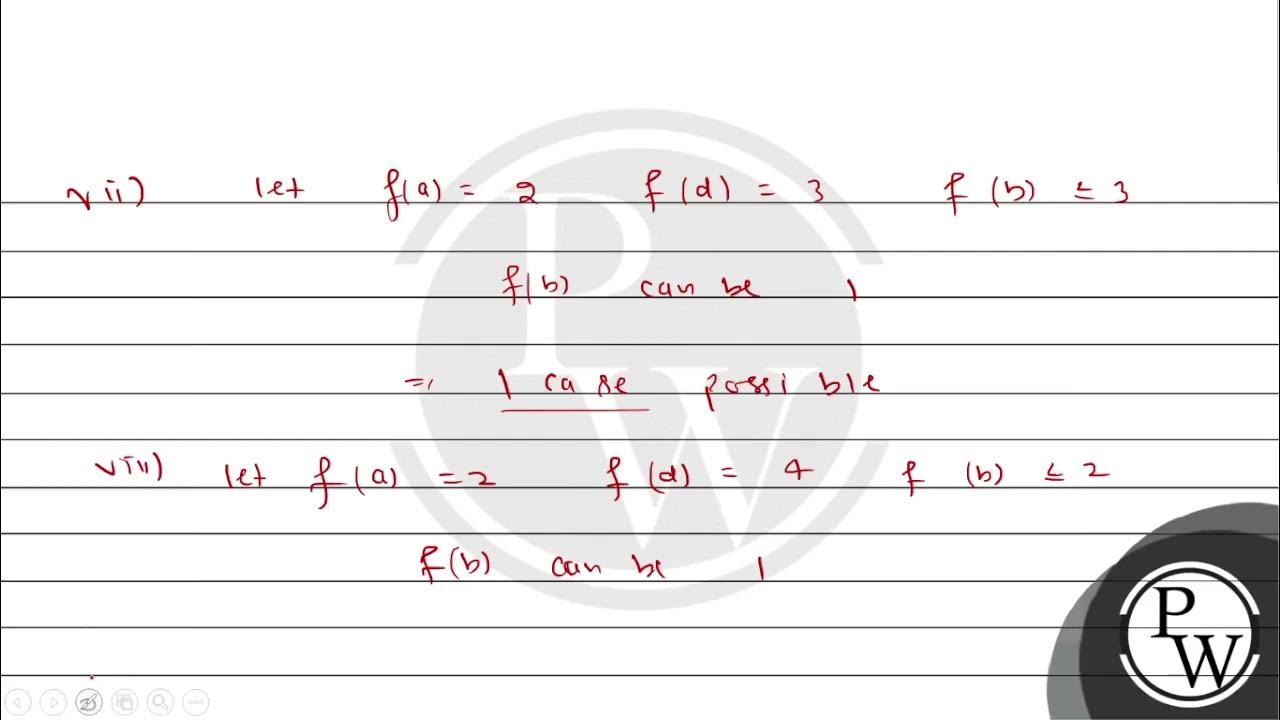 vii) let f(a) = 2 f(d) = 3 f(b) ≤ 3
f(b) can be 1
=> 1 case possible
viii) let f(a) = 2 f(d) = 4 f(b) ≤ 2
f(b) can be 1
P
W
P
W